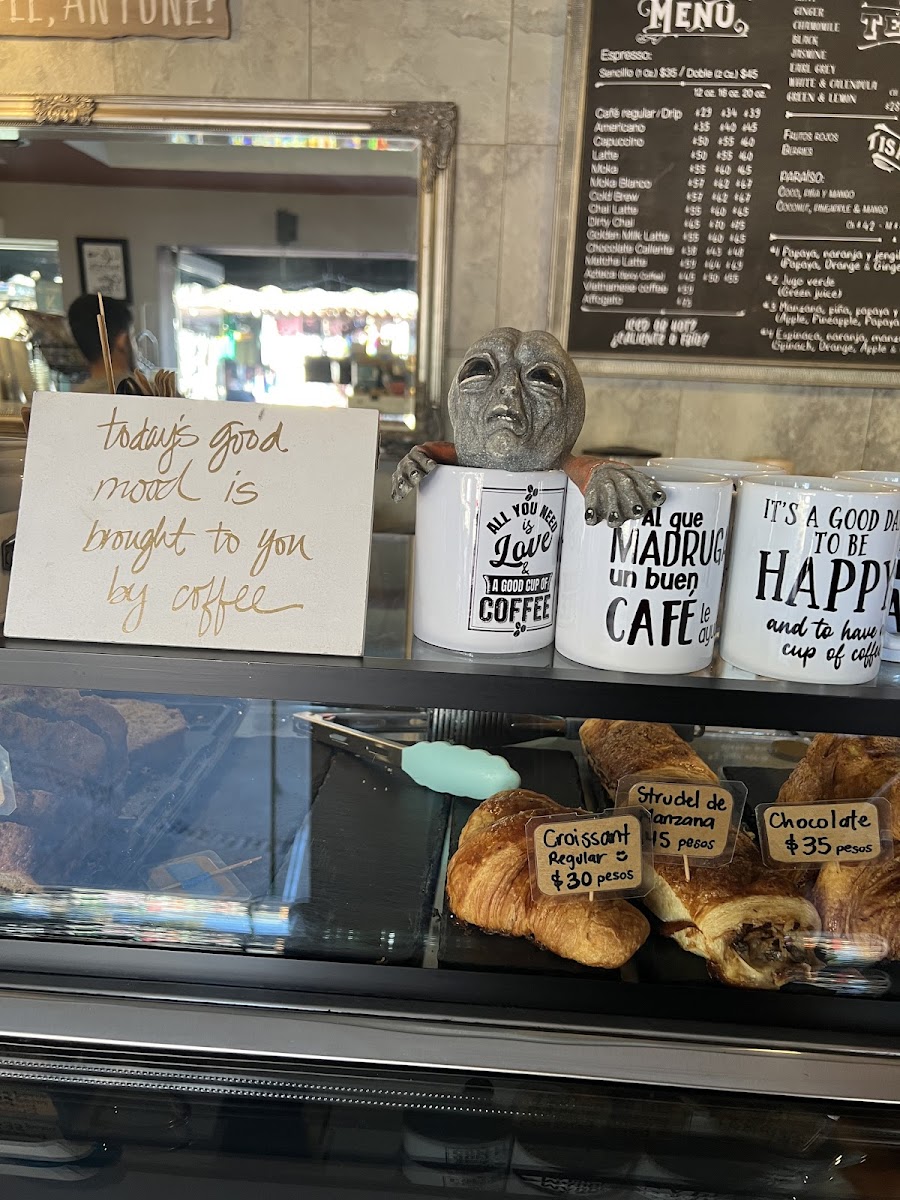 ANYONE?
MENÚ
Espresso:
Sencillo (1 oz.) $35 / Doble (2 oz.) $45
12 oz. 16 oz. 20 oz.
Café regular / Drip $29 $34 $39
Americano $35 $40 $45
Capuccino $50 $55 $60
Latte $50 $55 $60
Moka $55 $60 $65
Moka Blanco $57 $62 $67
Cold Brew $57 $62 $67
Chai Latte $55 $60 $65
Dirty Chai $65 $70 $75
Golden Milk Latte $55 $60 $65
Chocolate Caliente $38 $43 $48
Matcha Latte
Vietnamese coffee
Affogato
ICED OR HOT?
¿CALIENTE O FRÍO?
GINGER
CHAMOMILE
BLACK
JASMINE
EARL GREY
WHITE & CALENDULA
GREEN & LEMON
FRUTOS ROJOS
BERRIES
PARAÍSO:
COCO, PIÑA Y MANGO
COCONUT, PINEAPPLE & MANGO
*1 Papaya, naranja y jengi
(Papaya, Orange & Ginge
*2 Jugo verde
(Green juice)
*3 Manzana, piña, papaya y
(Apple, Pineapple, Papaya
*4 Espinaca, naranja, manz
(Spinach, Orange, Apple &
today's good
mood is
brought to you
by coffee
ALL YOU NEED
is
Love
&
A GOOD CUP OF
COFFEE
Al que
MADRUG
un buen
CAFÉ le
ayu
IT'S A GOOD DA
TO BE
HAPPY
and to have
cup of coff
Croissant
Regular
$30 pesos
Strudel de
Manzana
45 pesos
Chocolate
$35 pesos